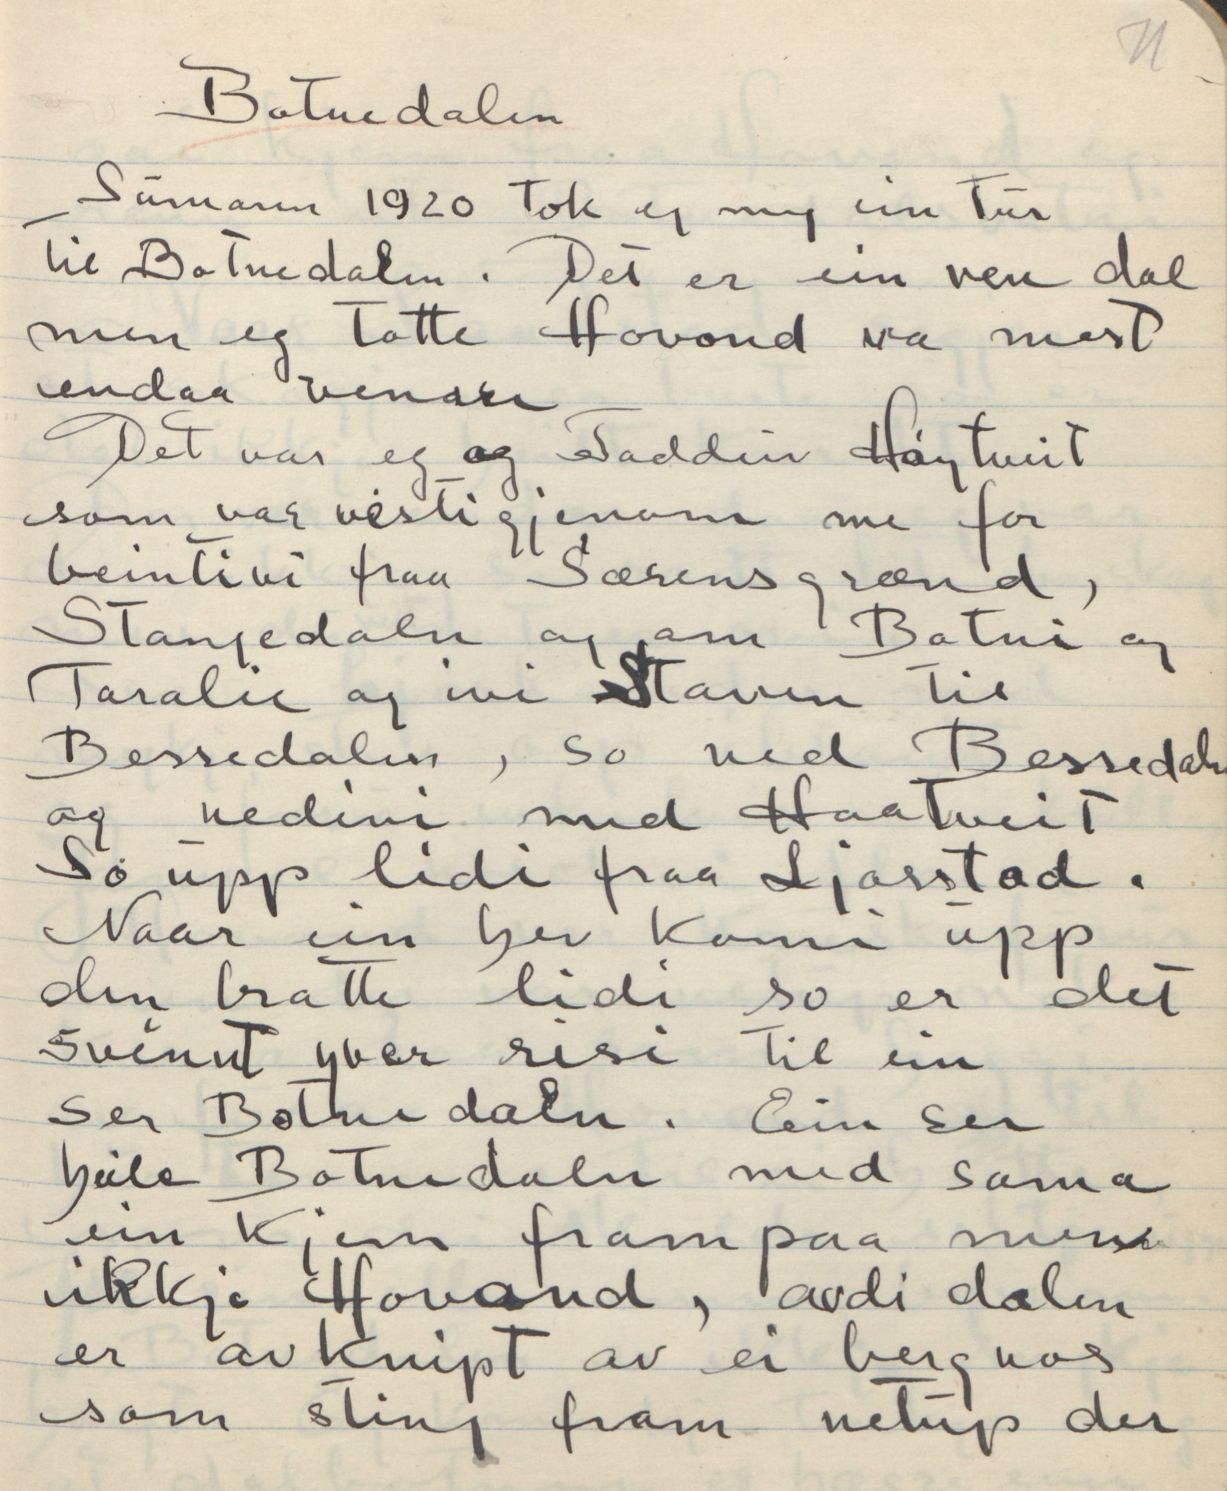 Botnedalen
Sūmaren 1920 tok eg meg ein tūr
til Botnedalen. Det er ein ven dal
men eg totte Hovond va mest
endaa venare
Det var eg og Taddeiv Høytveit
som var vésti gjenom me for
beintivi fraa Særensgrænd,
Stangedalen og om Botni og
Taralii og ivi Staven til
Bessedalen, so ned Bessedalen
og nedivi med Haatveit
So ūpp lidi fraa Ljosstad.
Naar ein hev komi ūpp
den bratte lidi so er det
svinnt yver risi til ein
ser Botnedalen. Ein ser
heile Botnedalen med sama
ein kjem frampaa men
ikkje Hovand, avdi dalen
er avknipt av ei bergnos
som sting fram netūp der